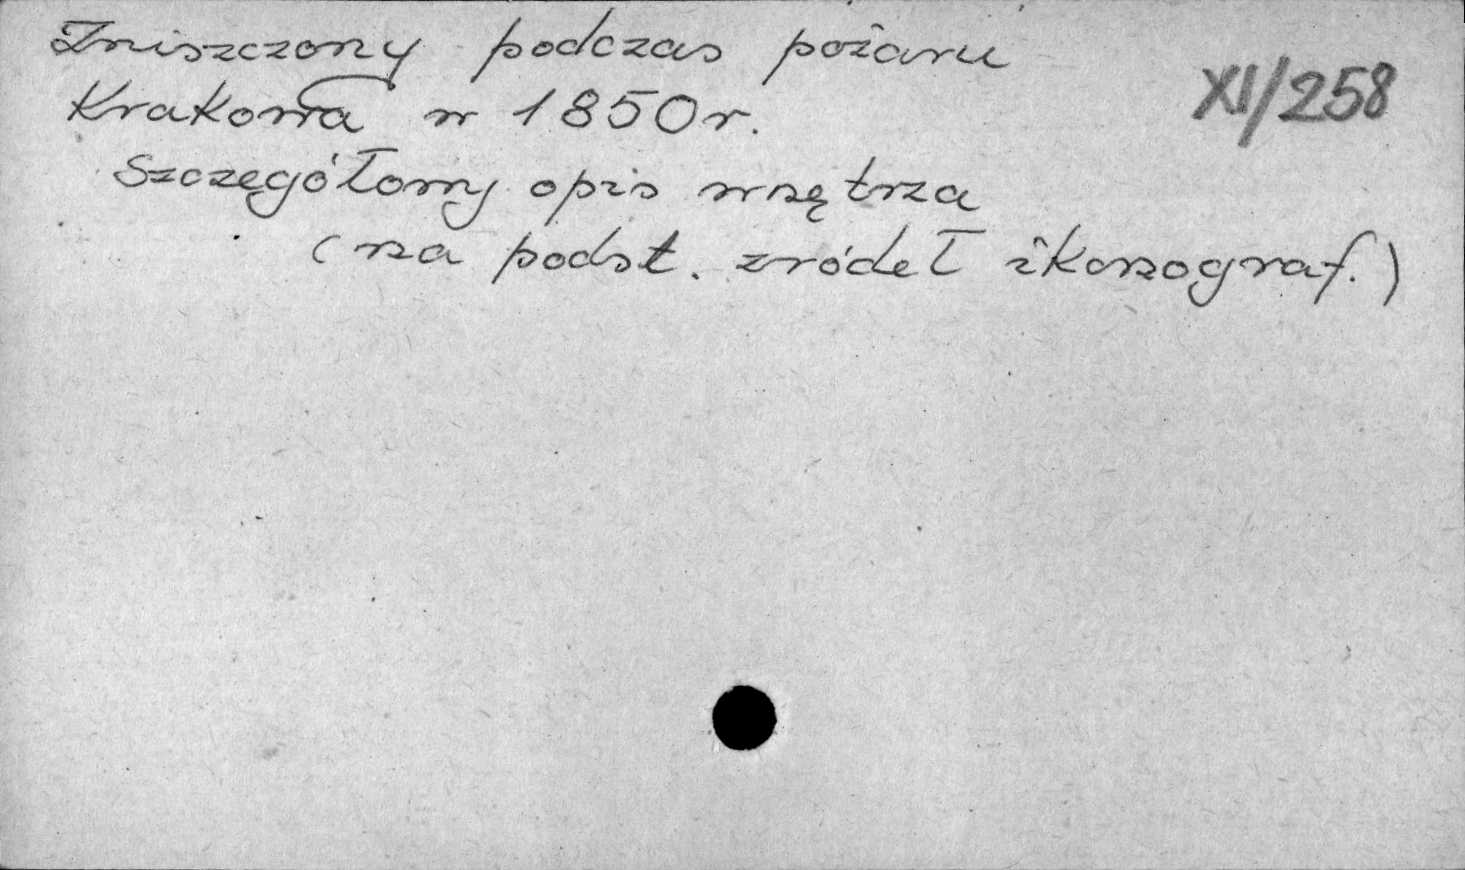 Zniszczony podczas pożaru
Krakowa w 1850 r.
XI/258
Szczegółowy opis wnętrza
(na podst. źródeł ikonograf.)